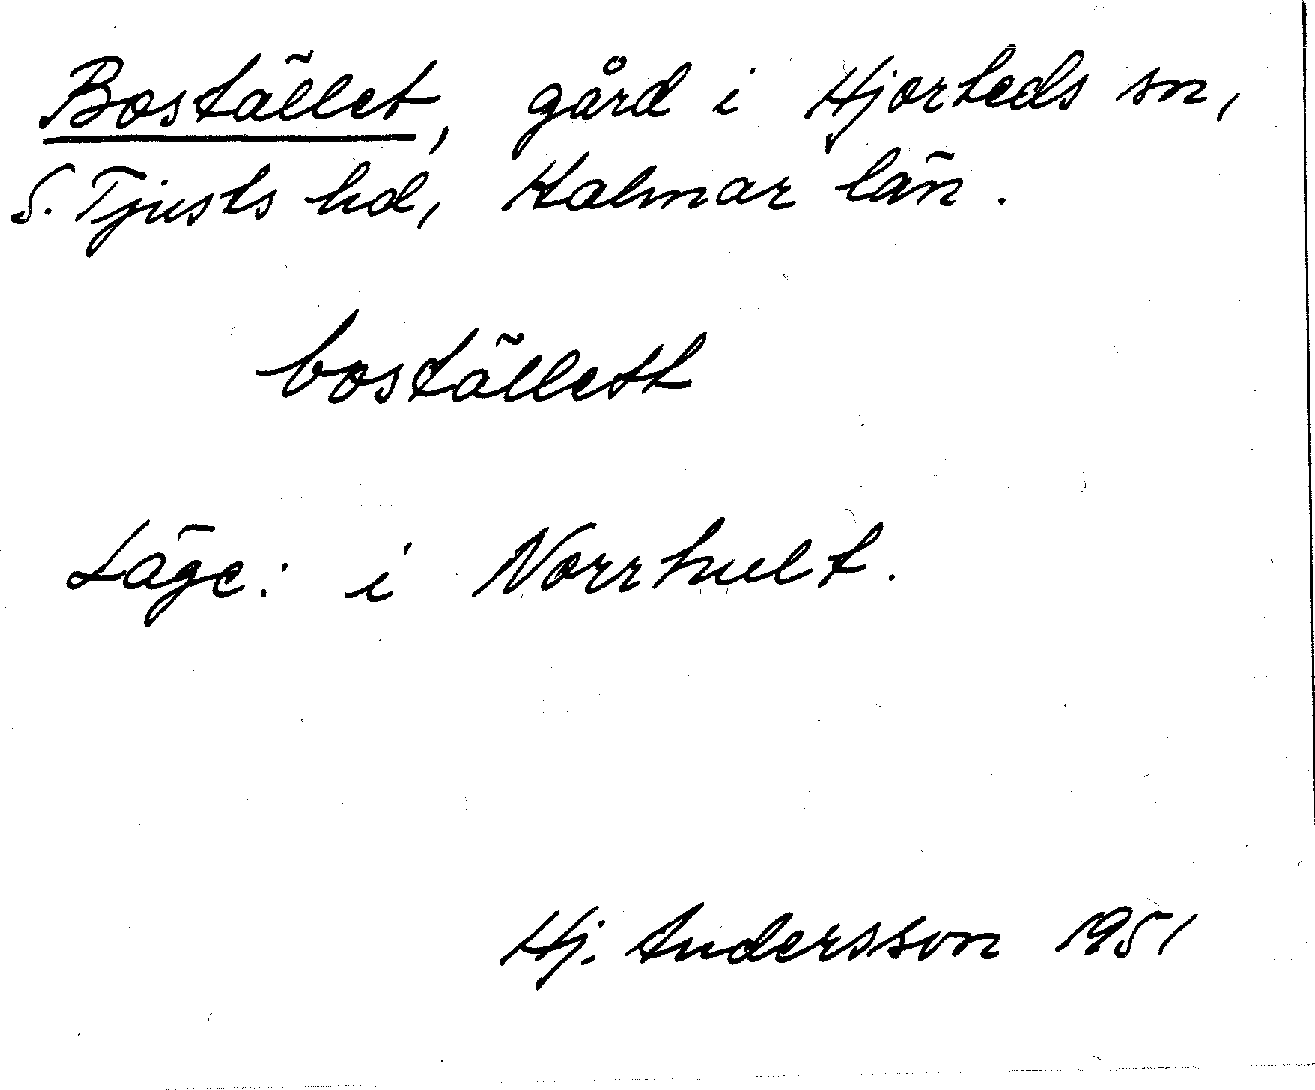 Bostället, gård i Hjorteds sn,
S. Tjusts hd, Kalmar län.
boställett
Läge: i Norrhult.
Hj. Andersson 1951